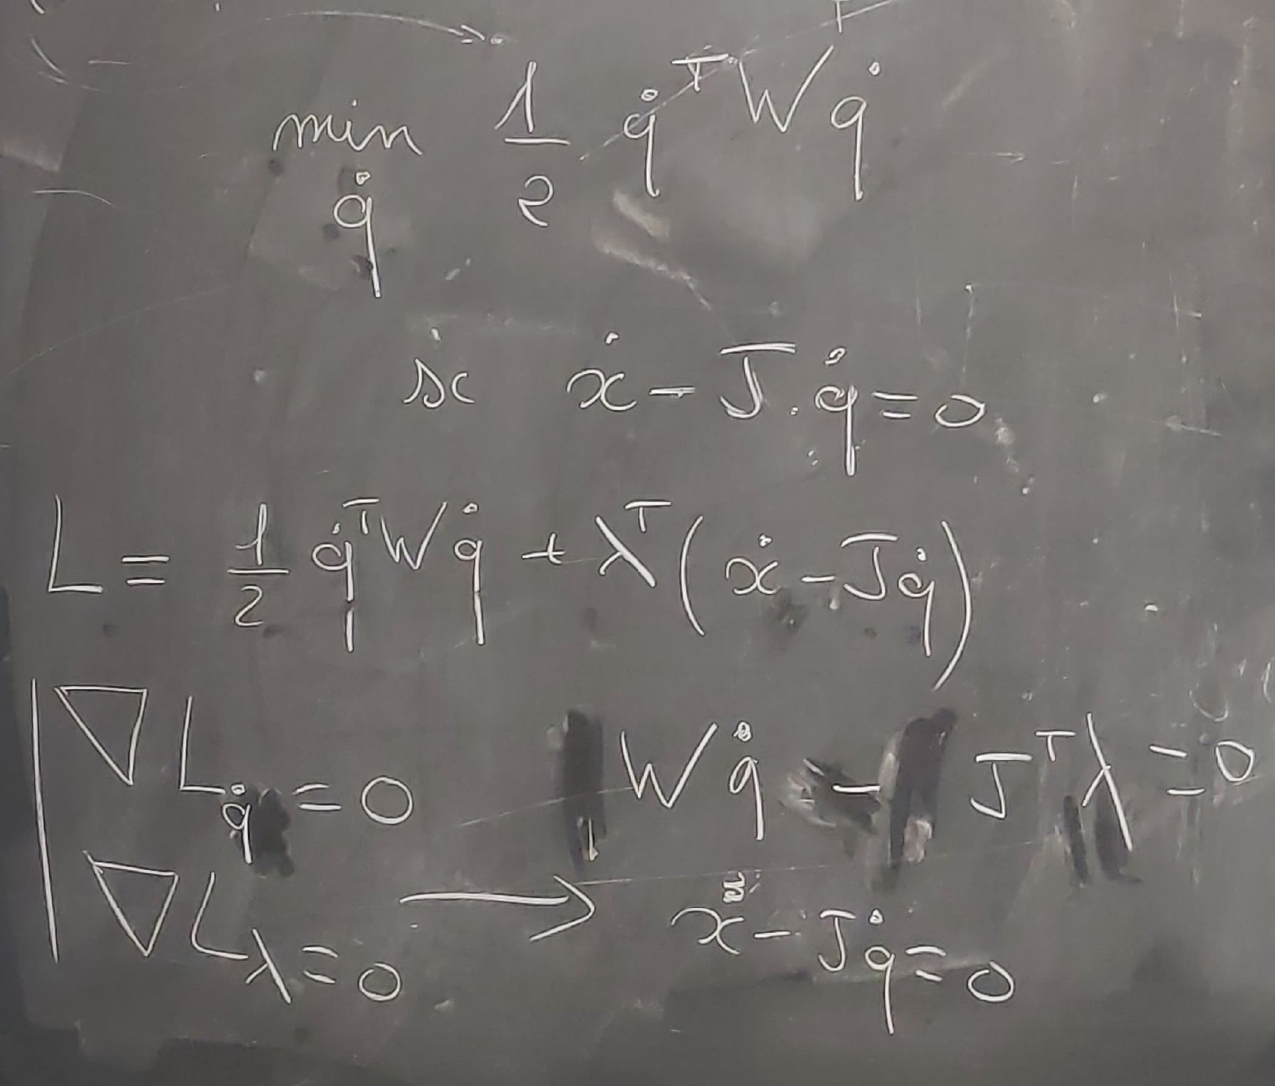 min 1/2 q̇ᵀ W q̇
q̇
sc ẋ - J . q̇ = 0
L = 1/2 q̇ᵀ W q̇ + λᵀ (ẋ - J q̇)
∇L_q̇ = 0 W q̇ - Jᵀ λ = 0
∇L_λ = 0 → ẋ - J q̇ = 0